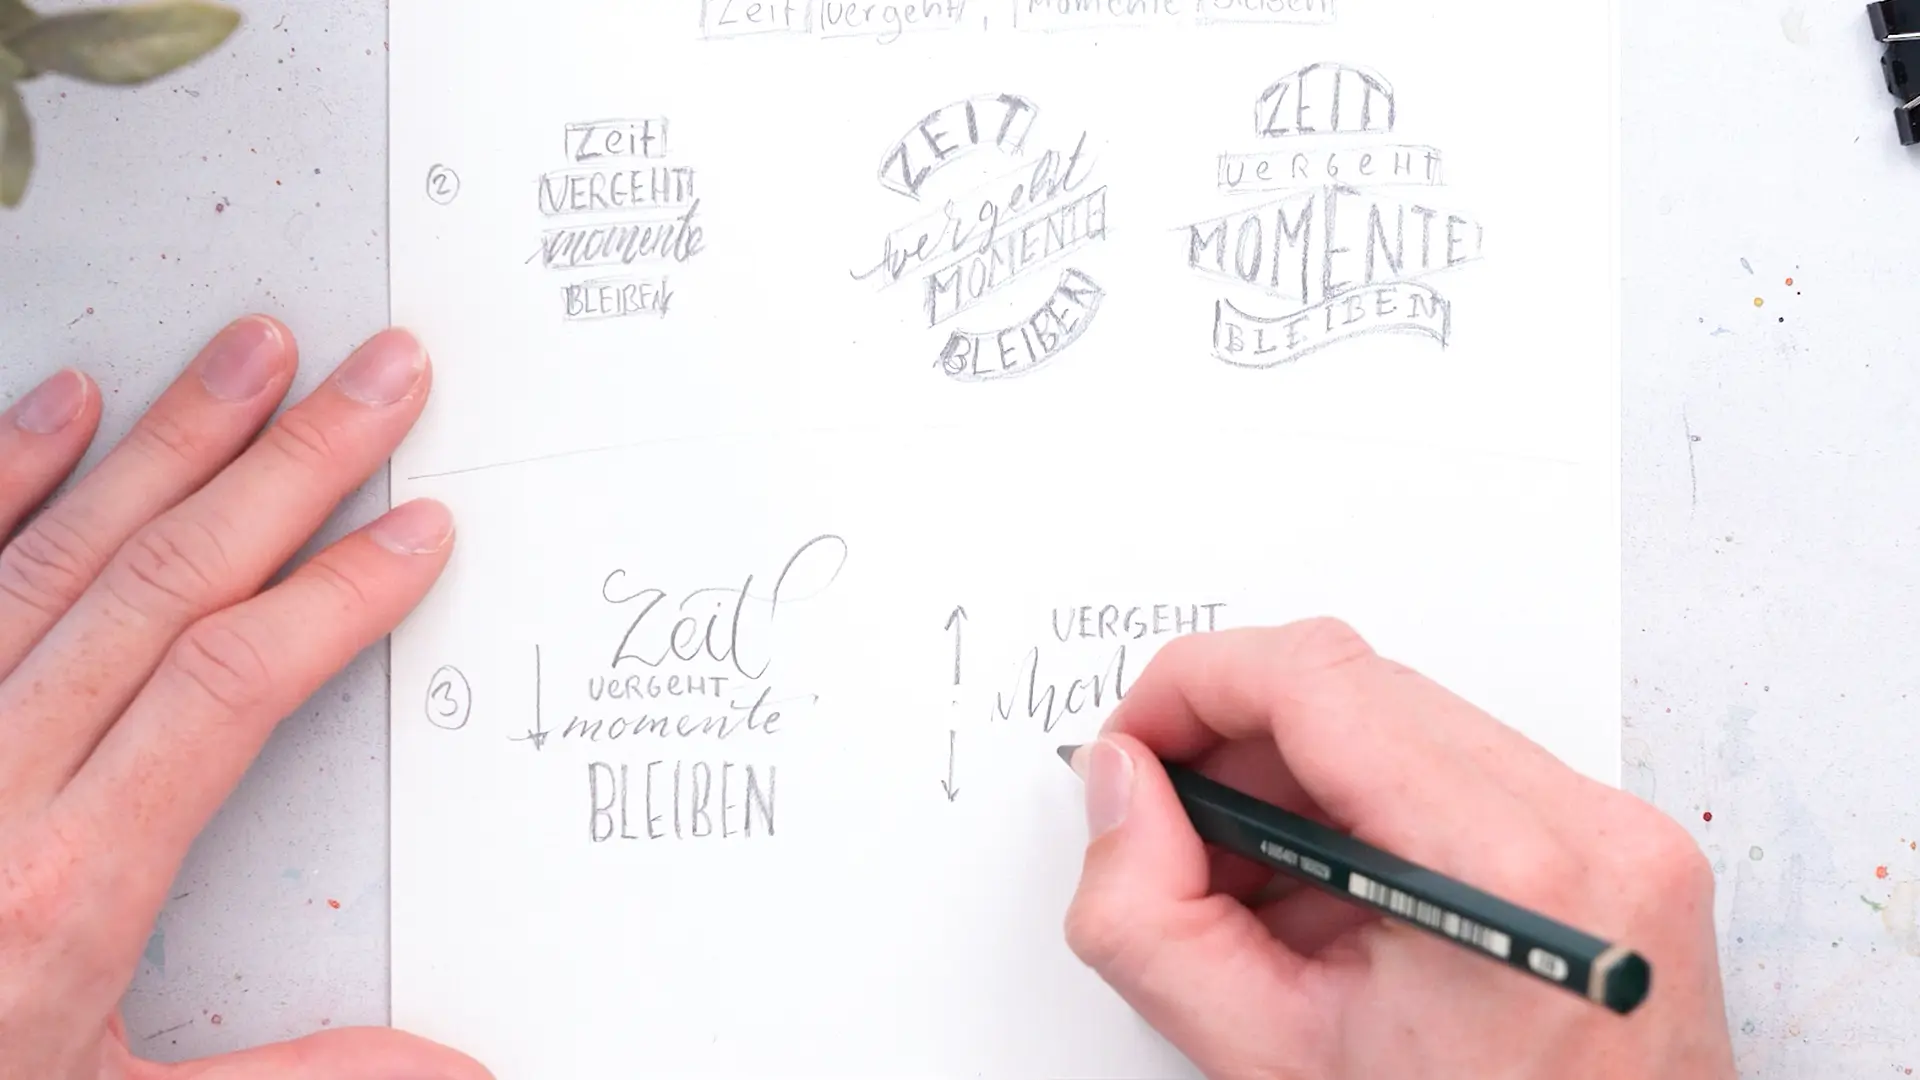 Zeit vergeht, Momente bleiben
2
Zeit
VERGEHT
momente
BLEIBEN
ZEIT
vergeht
MOMENTE
BLEIBEN
ZEIT
VeRGeHT
MOMENTE
BLEIBEN
3
Zeit
VeRGeHT
momente
BLEIBEN
VERGEHT
Mom